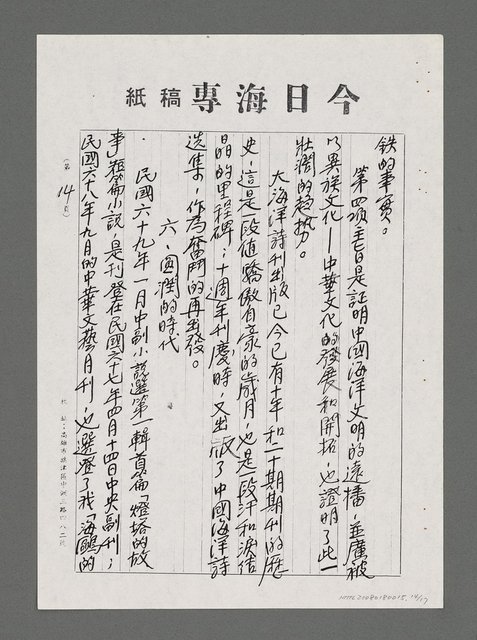 今日海專稿紙
鉄的事實。
第四項主旨是証明中國海洋文明的遠播,並廣被
以異族文化——中華文化的發展和開拓,也證明了此一
壯濶的趨勢。
大海洋詩刊出版已今已有十年和二十期期刊的歷
史,這是一段值驕傲自豪的歲月,也是一段汗和淚結
晶的里程碑;十週年刊慶時,又出版了中國海洋詩
选集,作為奮鬥的再出發。
六、圓潤的時代
民國六十九年一月中副小說選第一輯首篇「燈塔的故
事」短篇小說,是刊登在民國六十七年四月十四日中央副刊;
民國六十八年九月的中華文藝月刊,也選登了我「海鷗的
(第14頁)
校址:高雄市旗津區中洲三路四八二號
NMTL20080180015, 14/17